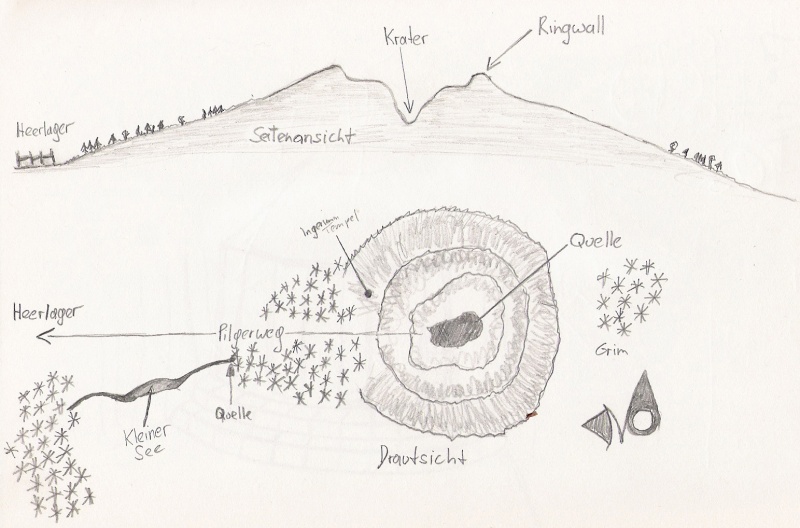 Krater
Ringwall
Heerlager
Seitenansicht
Tempel
Quelle
Heerlager
Pilgerweg
Grim
Quelle
Kleiner
See
Drautsicht